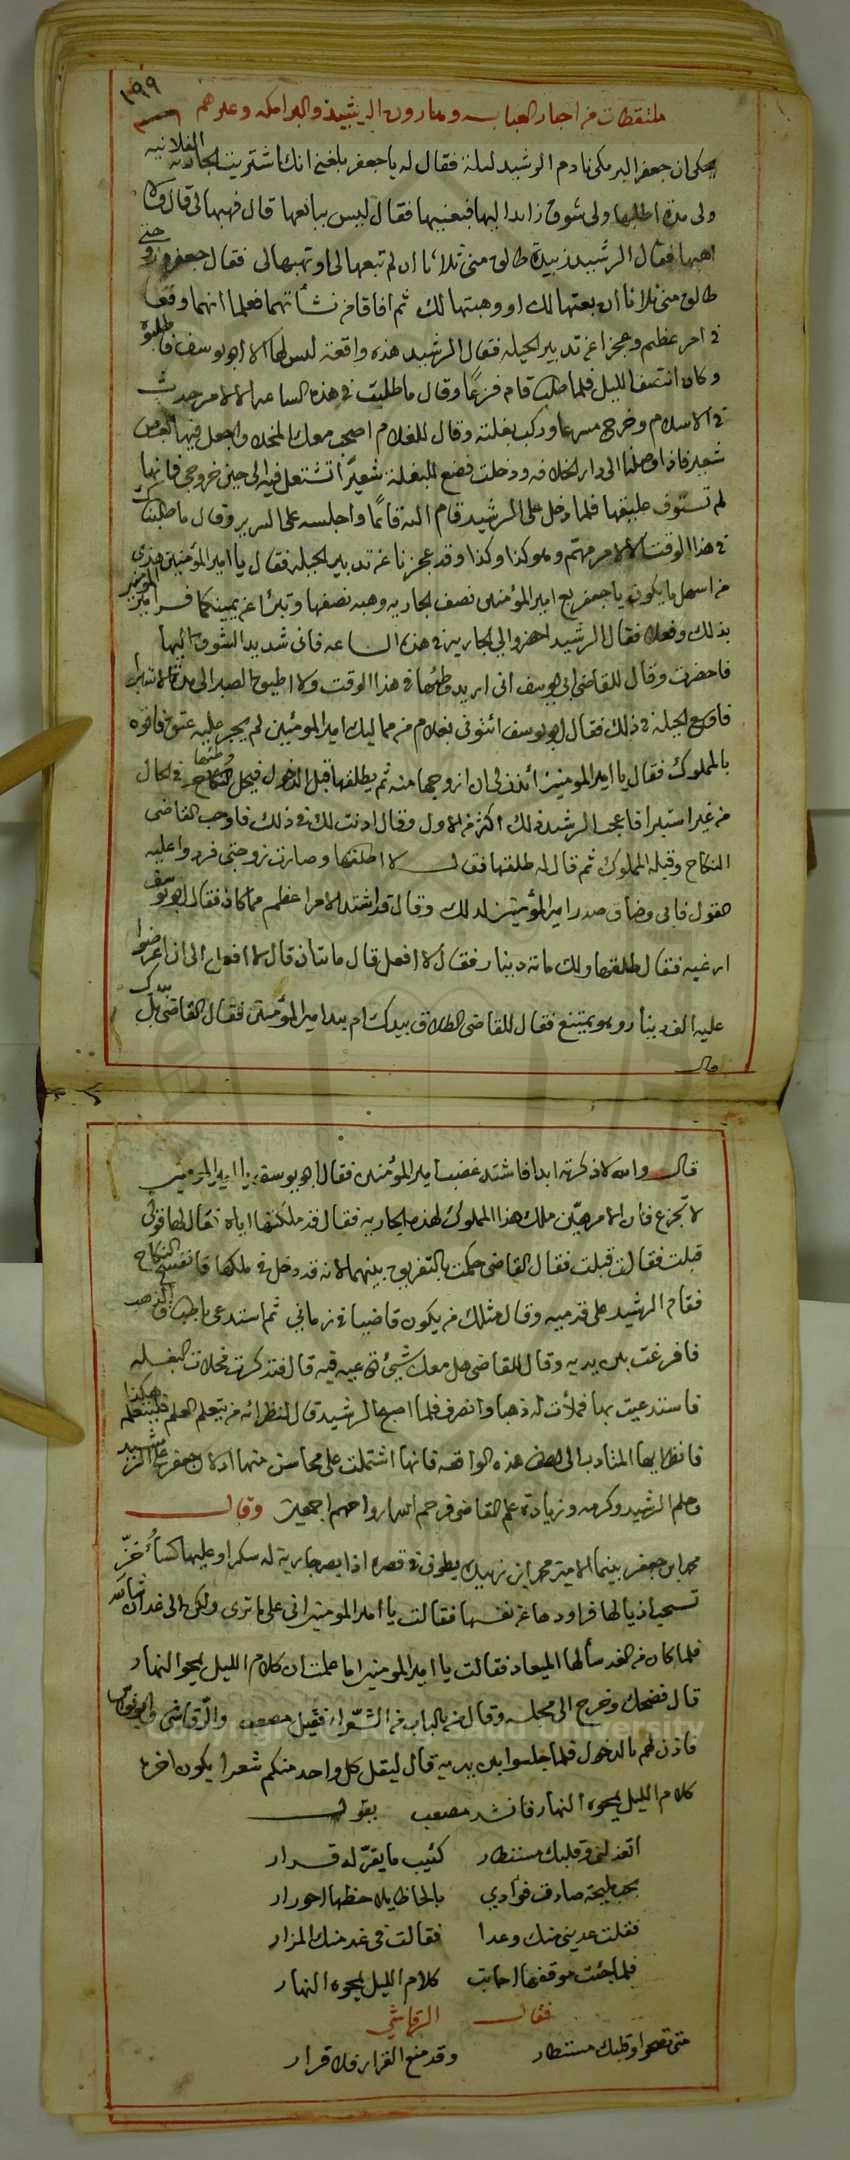 ١٩٩
ملتقطات من اخبار العباسه وهارون الرشيد والبرامكه وغيرهم
يحكى ان جعفر البرمكي نادم الرشيد ليلة فقال له يا جعفر بلغني انك اشتريت الجاريه الفلانيه
ولي مدة اطلبها ولي شوق زايد اليها فبعنيها فقال ليس ببايعها قال فهبها لي قال ولا
اهبها فقال الرشيد زبيدة طالق مني ثلاثا ان لم تبعها لي او تهبها لي فقال جعفر زوجتي
طالق مني ثلاثا ان بعتها لك او وهبتها لك ثم افاقا من نشأتهما فعلما انهما وقعا
في امر عظيم وعجزا عن تدبير الحيله فقال الرشيد هذه واقعة ليس لها الا ابو يوسف فاطلبوه
وكان انتصف الليل فلما طلب قام فزعا وقال ما طلبت في هذه الساعه الا لامر حدث
في الاسلام وخرج مسرعا وركب بغلته وقال للغلام اصحب معك المخلاه واجعل فيها بعض
شعير فاذا وصلنا الى دار الخلافه ودخلت فضع للبغلة شعيرا تشتغل فيه الى حين خروجي فانها
لم تستوف عليقها فلما دخل على الرشيد قام اليه قائما واجلسه على السرير وقال ما طلبناك
في هذا الوقت الا لامر مهم وهو كذا وكذا وقد عجزنا عن تدبير الحيله فقال يا امير المؤمنين هذي
من اسهل ما يكون يا جعفر بع امير المؤمنين نصف الجاريه وهبه نصفها وتبرئا عن يمينكما فسر امير المؤمنين
بذلك وفعلا فقال الرشيد احضروا لي الجاريه في هذه الساعه فاني شديد الشوق اليها
فاحضرت وقال للقاضي ابي يوسف اني اريد وطئها في هذا الوقت ولا اطيق الصبر الى مدة الاستبراء
فاوقع الحيلة في ذلك فقال ابو يوسف ائتوني بغلام من مماليك امير المؤمنين لم يجر عليه عتق فاتوه
بالمملوك فقال يا امير المومنين أئذن لي ان ازوجها منه ثم يطلقها قبل الدخول فيحل وطئها في الحال
من غير استبرا فاعجب الرشيد ذلك اكثر من الاول وقال اذنت لك في ذلك فاوجب القاضي
النكاح وقبله المملوك ثم قال له طلقها فقال لا اطلقها وصارت زوجتي فردوا عليه
القول فابى وضاق صدر امير المؤمنين لذلك وقال قد اشتد الامر اعظم مما كان فقال ابو يوسف
ارغبه فقال طلقها ولك مائة دينار فقال لا افعل قال مائتان قال لا افعل الى ان اعرضوا
عليه الف دينار وهو يمتنع فقال للقاضي الطلاق بيدك ام بيد امير المؤمنين فقال القاضي بل بيدك
قال
قال والله لا ذكرته ابدا فاشتد غضب امير المؤمنين فقال ابو يوسف يا امير المومنين
لا تجزع فان الامر هين ملك هذا المملوك لهذه الجاريه فقال قد ملكتها اياه فقال لها قولي
قبلت فقالت قبلت فقال القاضي حكمت بالتفريق بينهما لانه قد دخل في ملكها فانفسخ النكاح
فقام الرشيد على قدميه وقال مثلك من يكون قاضيا في زماني ثم استدعى باطباق الذهب
فافرغت بين يديه وقال للقاضي هل معك شيئ تعيه فيه قال فتذكرت مخلاة البغله
فاستدعيت بها فملأت له ذهبا وانصرف فلما اصبح الرشيد قال لنظرائه من يتعلم العلم فليتعلمه هكذا
فانظر ايها المتادب الى لطف هذه الواقعه فانها اشتملت على محاسن منها ادلال جعفر على الرشيد
وحلم الرشيد وكرمه وزيادة علم القاضي فرحم الله ارواحهم اجمعين وقال
محمد ابن جعفر بينما الامير محمد ابن زبيدة يطوف في قصره اذا بصر جارية له سكرا وعليها كساء خز
تسحب اذيالها فراودها عن نفسها فقالت يا امير المومنين اني على ما ترى ولكن الى غد ان شا الله
فلما كان من الغد سألها الميعاد فقالت يا امير المومنين اما علمت ان كلام الليل يمحوه النهار
قال فضحك وخرج الى مجلسه وقال من بالباب من الشعراء فقيل مصعب والرقاشي وابو نواس
فاذن لهم بالدخول فلما جلسوا بين يديه قال ليقل كل واحد منكم شعرا يكون اخره
كلام الليل يمحوه النهار فانشد مصعب يقول
اتعذلني وقلبك مستطار كئيب ما يقر له قرار
بحب مليحة صادت فؤادي بالحاظ يلاحظها احورار
فقلت عديني منك وعدا فقالت في غد منك المزار
فلما جئت موقفها اجابت كلام الليل يمحوه النهار
فقال الرقاشي
متى تصحوا وقلبك مستطار وقد منع القرار فلا قرار
Copyright © King Saud University